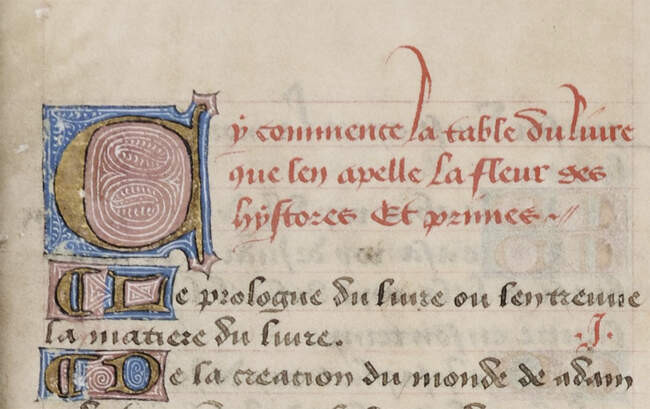 Cy commence la table du liure
que len apelle La fleur des
hystores Et primes
Le prologue du liure ou len treuue
la matiere du liure. .I.
De la creation du monde de adam